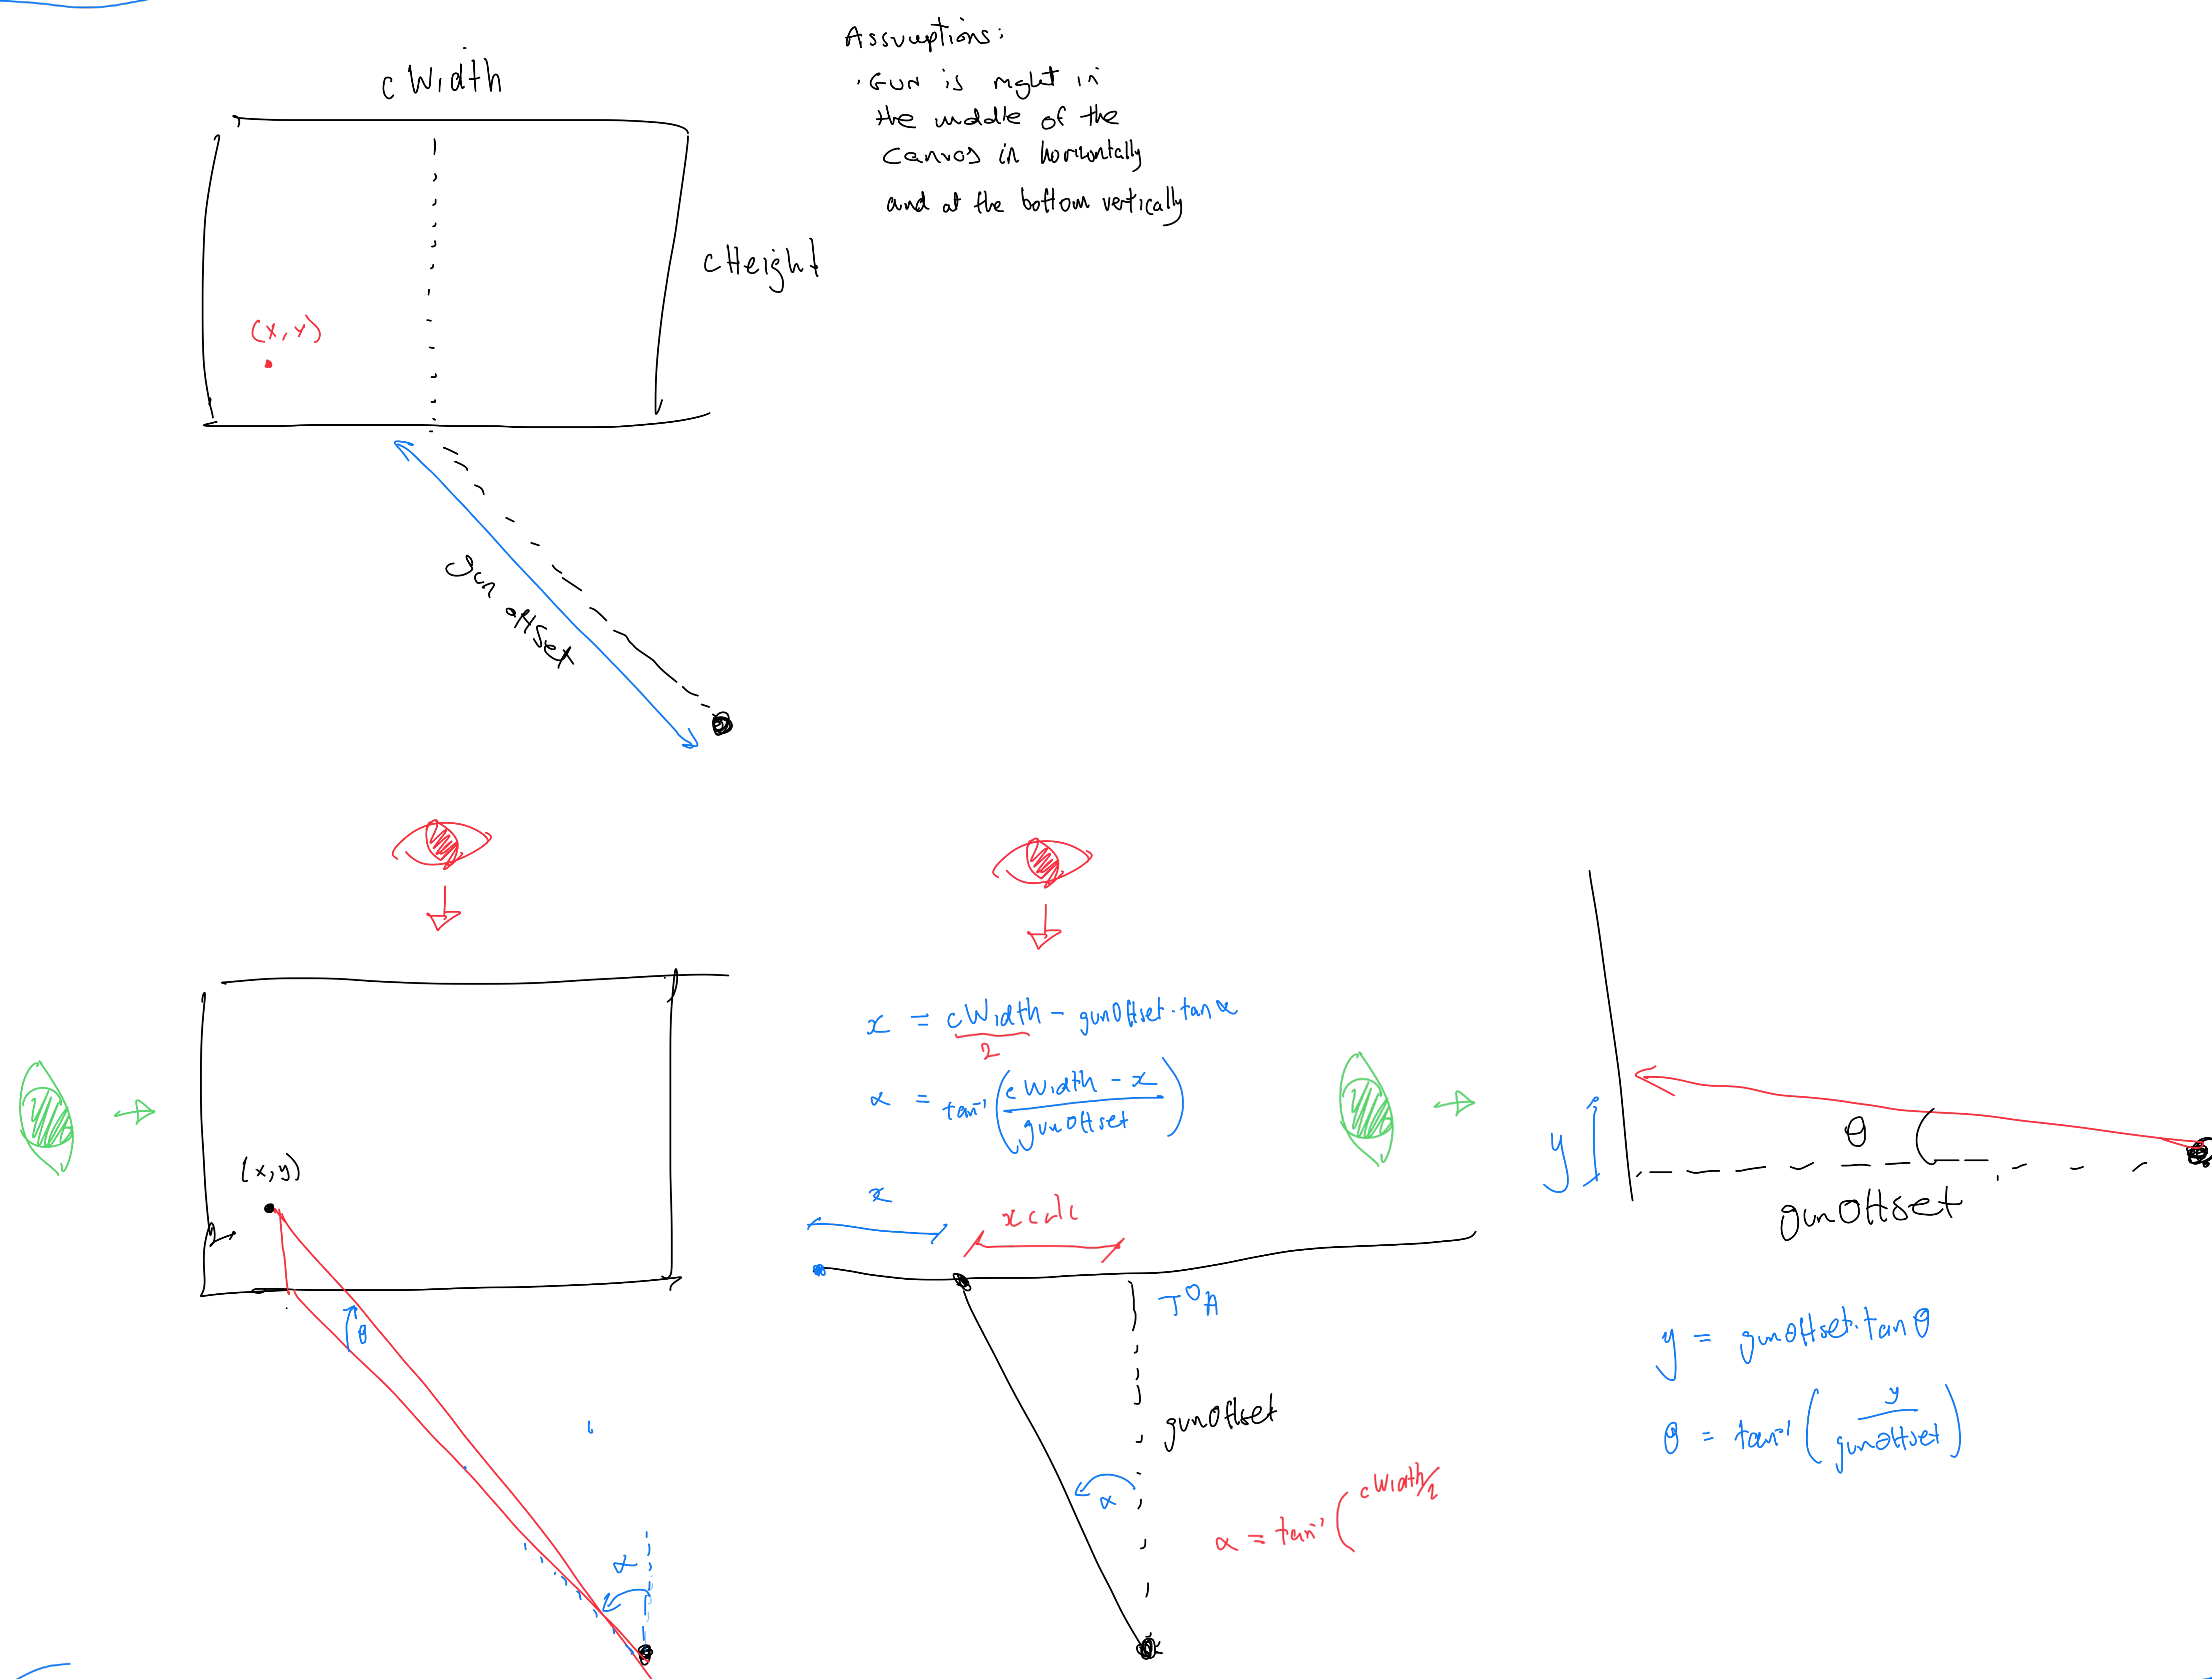 Assumptions:
. Gun is right in
the middle of the
canvas in horizontally
and at the bottom vertically
cWidth
cHeight
(x, y)
gun offset
(x,y)
θ
α
x = cWidth/2 - gunOffset·tanα
α = tan⁻¹(cWidth - x / gunOffset)
x
xcalc
TOA
gunOffset
α
α = tan⁻¹(cWidth/2
y
θ
gunOffset
y = gunOffset·tanθ
θ = tan⁻¹(y / gunOffset)